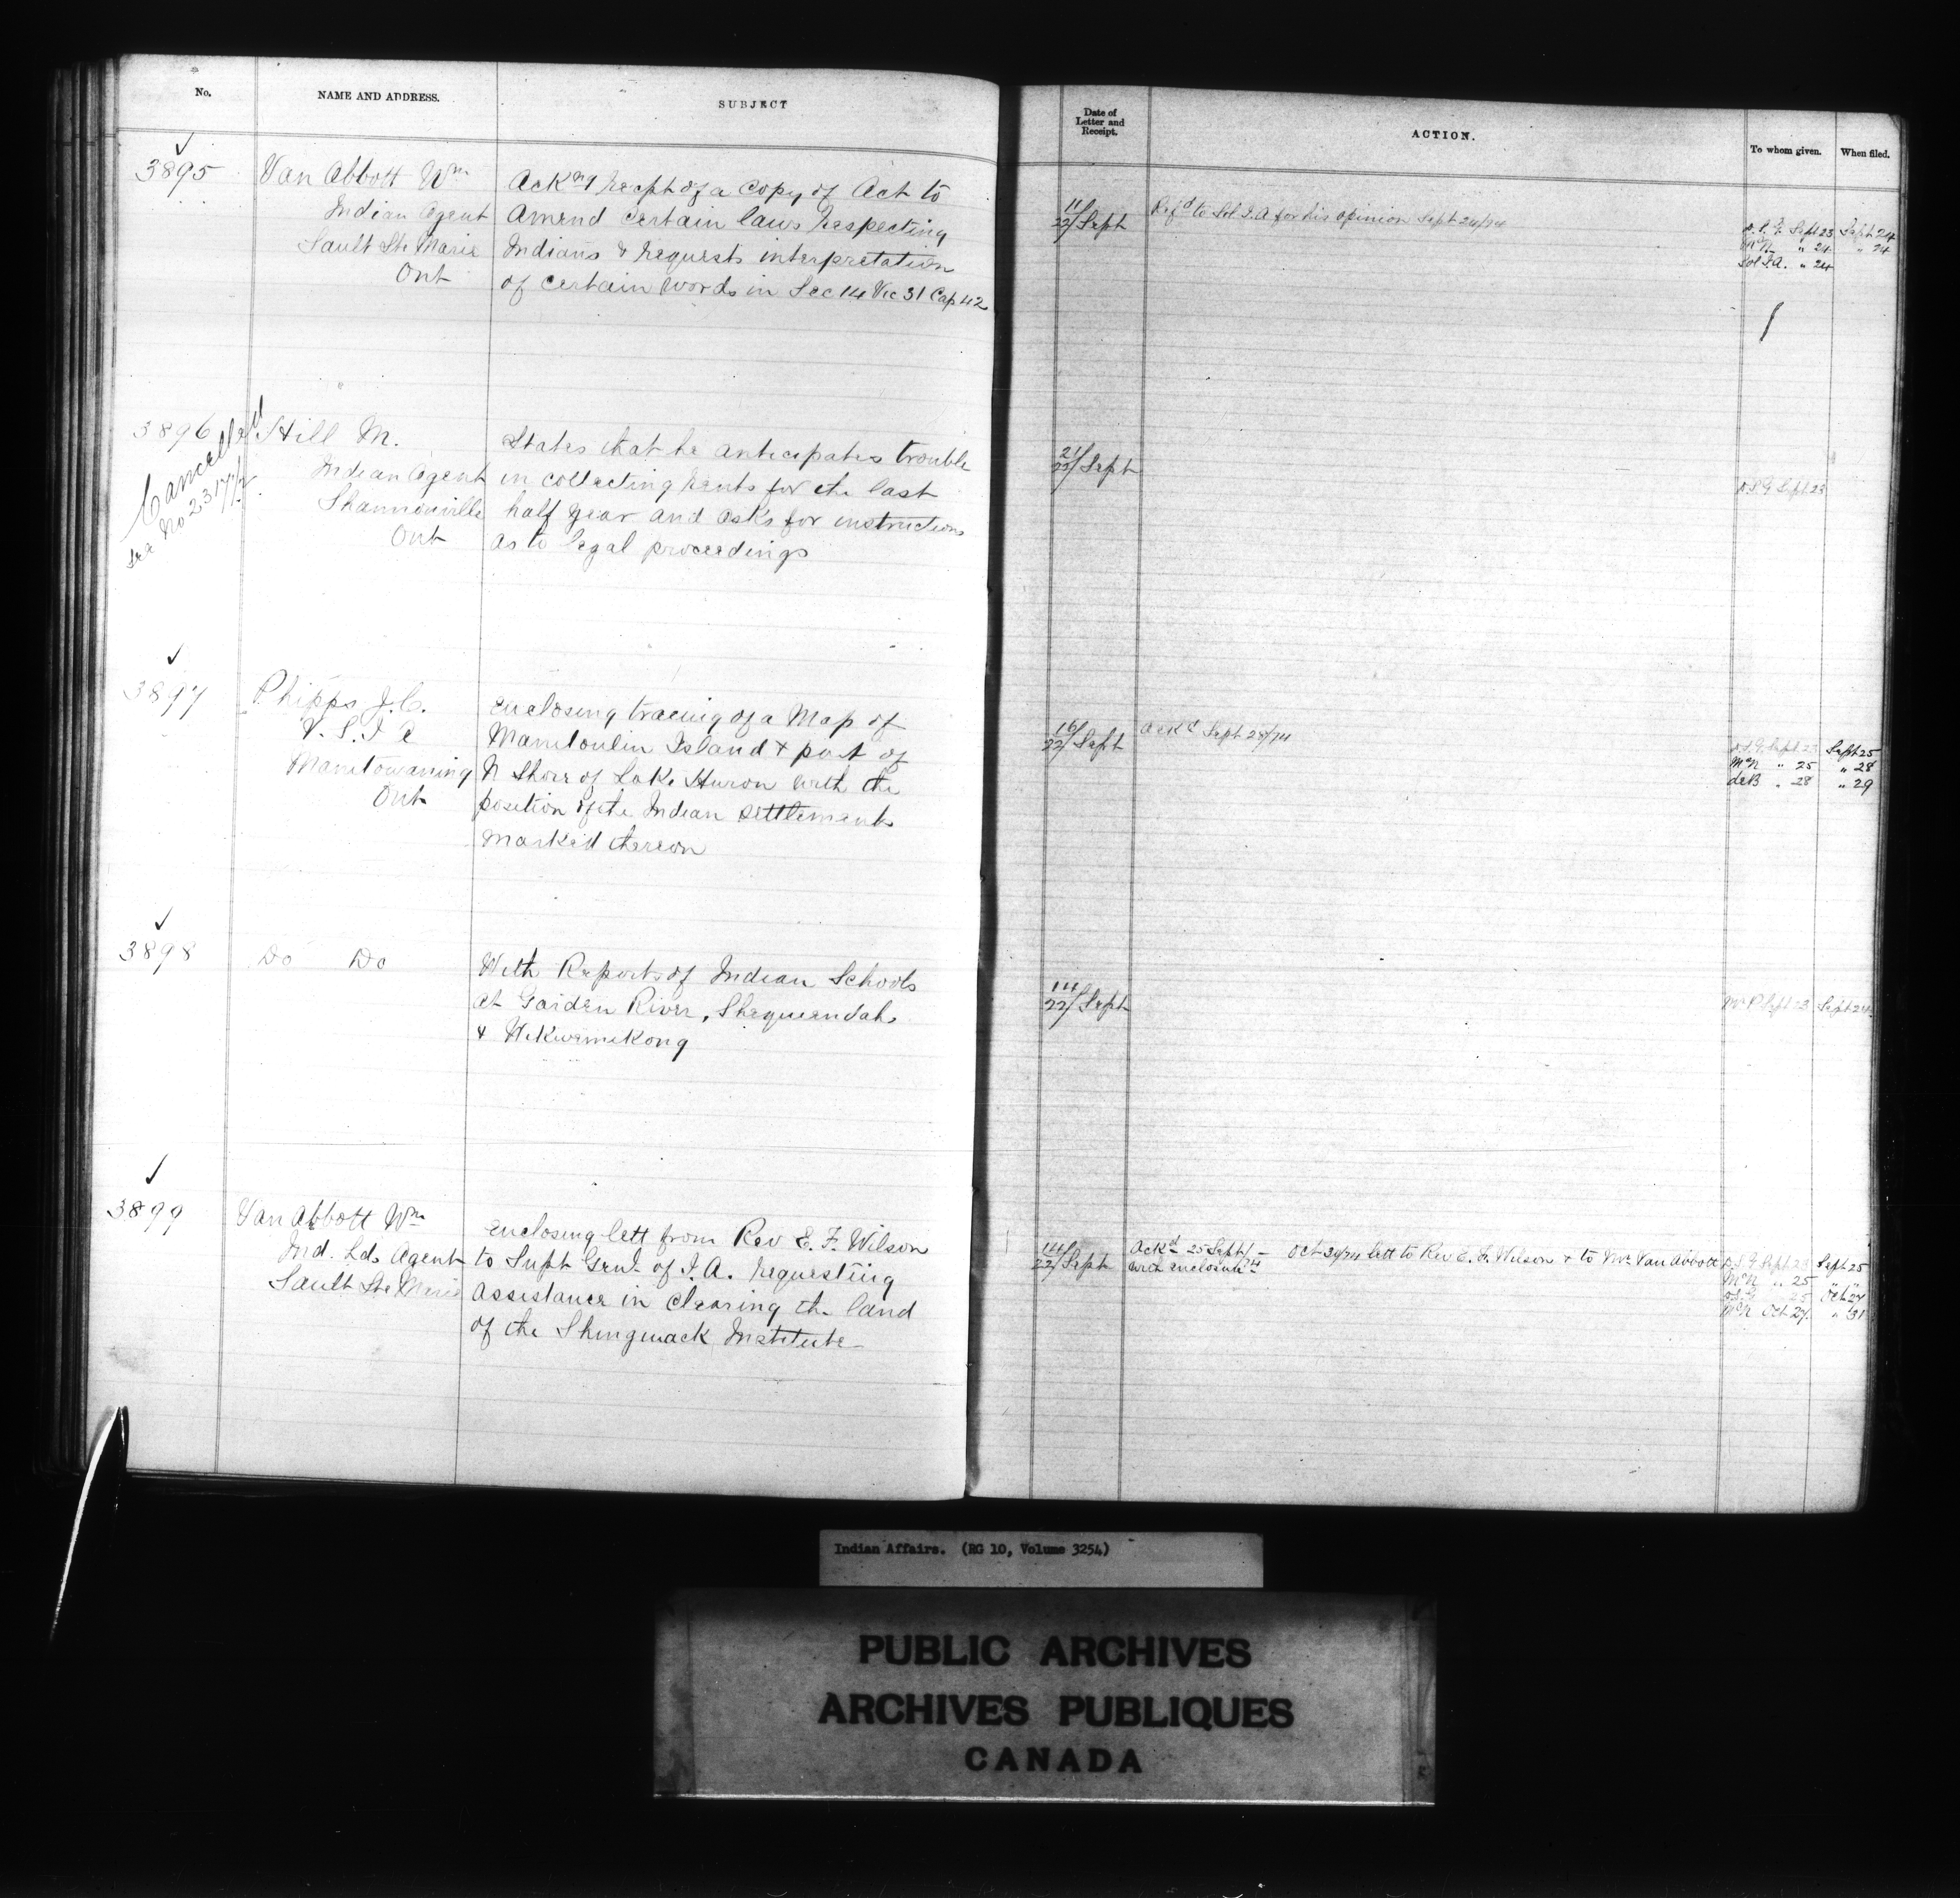 No.
NAME AND ADDRESS.
SUBJECT
Date of
Letter and
Receipt.
ACTION.
To whom given.
When filed.
3895
Van Abbott Wm
Indian Agent
Sault Ste Marie
Ont
Ackng recpt of a Copy of Act to
Amend Certain laws respecting
Indians & requests interpretation
of certain words in Sec 14 Vic 31 Cap 42
11
22/Sept
Refd to Sol I.A for his opinion Sept 24/74
D.S.G. Sept 23 Sept 24
McN " 24 " 24
Sol I.A. " 24
3896
Cancelled
See No 2317 1/2
Hill M.
Indian Agent
Shannonville
Ont
States that he anticipates trouble
in collecting rents for the last
half year and asks for instructions
as to legal proceedings
21
22/Sept
D.S.G Sept 23
3897
Phipps J.C.
V.S.I.A
Manitowaning
Ont
enclosing tracing of a Map of
Manitoulin Island & part of
N Shore of Lake Huron with the
position of the Indian settlements
marked thereon
16
22/Sept
Ackd Sept 28/74
D.S.G. Sept 23 Sept 25
McN " 25 " 28
deB " 28 " 29
3898
Do Do
With Reports of Indian Schools
at Garden River, Sheguendah
& Wikwemekong
14
22/Sept
Mr P Sept 23 Sept 24
3899
Van Abbott Wm
Ind. Lds Agent
Sault Ste Marie
enclosing lett from Rev E. F. Wilson
to Supt Genl of I.A. requesting
assistance in clearing the land
of the Shingwack Institute
14
22/Sept
Ackd 25 Sept/ — Oct 29/74 lett to Rev E. F. Wilson & to Mr Van Abbott
with enclosure
D.S.G Sept 23 Sept 25
McN " 25 " "
D.S.G " 25 Oct 27
McN Oct 27. " 31
Indian Affairs. (RG 10, Volume 3254)
PUBLIC ARCHIVES
ARCHIVES PUBLIQUES
CANADA